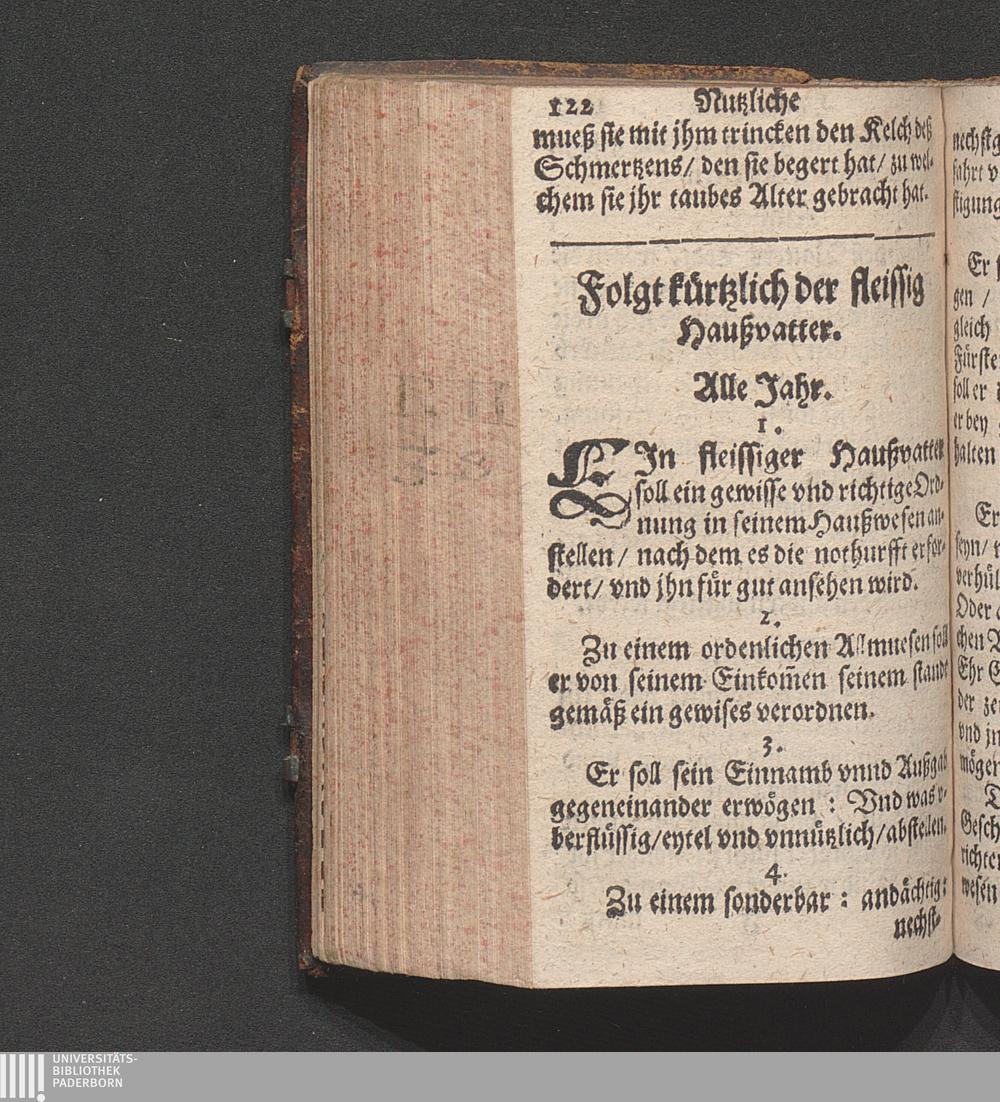 122 Nutzliche
mueß sie mit jhm trincken den Kelch deß
Schmertzens/ den sie begert hat/ zu wel-
chem sie jhr taubes Alter gebracht hat.
Folgt kürtzlich der fleissig
Haußvatter.
Alle Jahr.
1.
EIn fleissiger Haußvatter
soll ein gewisse vnd richtige Ord-
nung in seinem Haußwesen an-
stellen / nach dem es die nothurfft erfor-
dert/ vnd jhn für gut ansehen wird.
2.
Zu einem ordenlichen Allmuesen soll
er von seinem Einkom̃en seinem stande
gemäß ein gewises verordnen.
3.
Er soll sein Einnamb vnnd Außgab
gegeneinander erwögen : Vnd was v-
berflüssig/eytel vnd vnnützlich/abstellen.
4.
Zu einem sonderbar : andächtig:
nechst-
nechstg
fahrt v
stigung
Er
gen /
gleich
Fürste
soll er
er bey
halten
Er
seyn/
verhül
Oder
chen
Ehr
der
vnd
mögen
Gesch
richten
wesen
UNIVERSITÄTS-
BIBLIOTHEK
PADERBORN